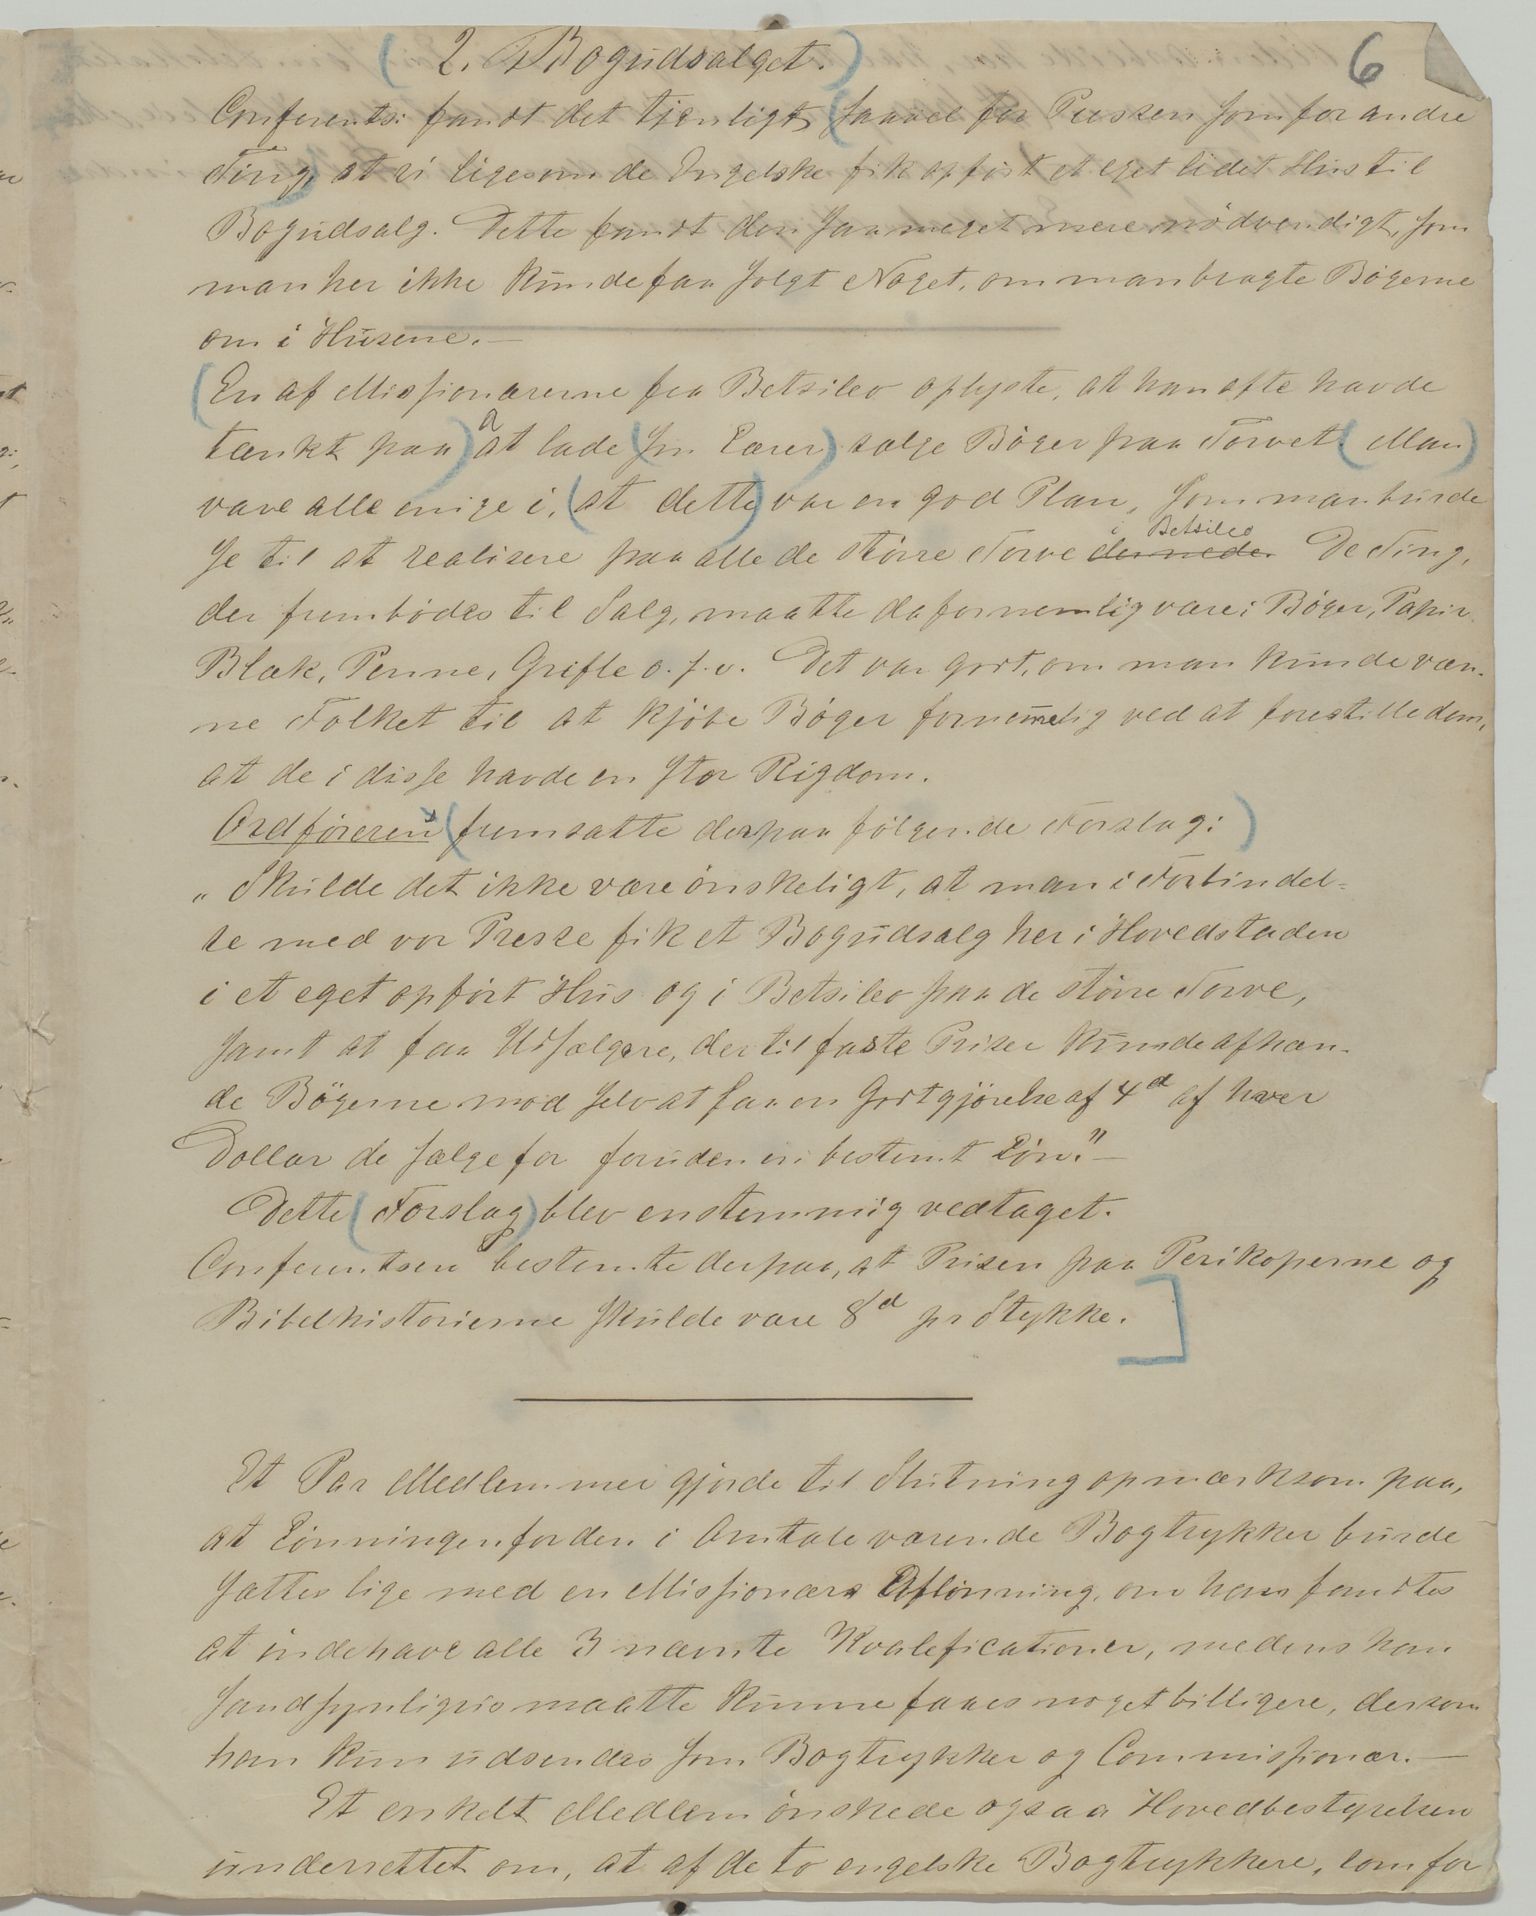 6
2. Bogudsalget.
Conferents: fandt det tjenligt (saavel for Pressen som for andre
Ting) at vi ligesom de Engelske fik opført et eget lidet Hus til
Bogudsalg. Dette fandt den saa meget mere nödvendigt, som
man her ikke kunde faa solgt Noget, om man bragte Bøgerne
om i Husene. —
(En af Missionærerne fra Betsileo oplyste, at han ofte havde
tænkt paa) at lade (sin Lærer) sælge Bøger paa Torvet. (Man)
vare alle enige i, (at dette) var en god Plan, som man burde
i Betsileo
se til at realisere paa alle de større Torve dernede. De Ting,
der frembødes til Salg, maatte da fornemlig være: Bøger, Papir
Blæk, Penne, Grifle o. s. v. Det var godt, om man kunde væn-
ne Folket til at kjøbe Bøger fornemelig ved at forestille dem,
at de i disse havde en stor Rigdom.
Ordføreren (fremsatte derpaa følgende Forslag:)
"Skulde det ikke være ønskeligt, at man i Forbindel-
se med vor Presse fik et Bogudsalg her i Hovedstaden
i et eget opført Hus og i Betsileo paa de større Torve,
samt at faa Udsælgere, der til faste Priser kunde afhæn-
de Bögerne mod selv at faa en Godtgjörelse af 4d af hver
Dollar de sælge for foruden en bestemt Løn." —
Dette (Forslag) blev enstemmig vedtaget.
Conferentsen bestemte derpaa, at Prisen paa Perikoperne og
Bibelhistorierne skulde være 8d pr Stykke.]
Et Par Medlemmer gjorde til Slutning opmærksom paa,
at Lønningen for den i Omtale værende Bogtrykker burde
sættes lige med en Missionærs Aflønning, om han fandtes
at indehave alle 3 nævnte Kvalificationer, medens han
sandsynligvis maatte kunne faaes noget billigere, dersom
han kun udsendes som Bogtrykker og Commissionær. —
Et enkelt Medlem ønskede ogsaa Hovedbestyrelsen
underrettet om, at af de to engelske Bogtrykkere, som for